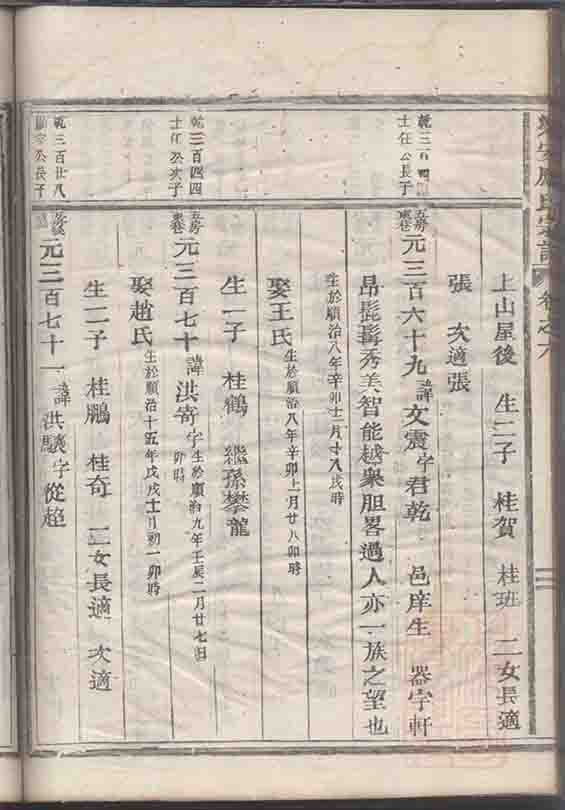 氏宗譜 卷之六
上山屋後 生二子 桂賀 桂班 二女長適
張 次適張
乾三百四
士任公長子
五房
東巷
元三百六十九 諱文震字君乾 邑庠生 器宇軒
昂髭髯秀美智能越衆胆畧過人亦一族之望也
生於順治八年辛卯十二月十八戌時
娶王氏 生於順治八年辛卯十一月廿八卯時
生一子 桂鶴 繼孫攀龍
乾三百四四
士任公次子
五房
東巷
元三百七十 諱洪寄字 生於順治九年壬辰二月廿七日
卯時
娶趙氏 生於順治十五年戊戌十一月初一卯時
生二子 桂鵬 桂奇 二女長適 次適
乾三百廿八
公長子
元三百七十一 諱洪驤字從超